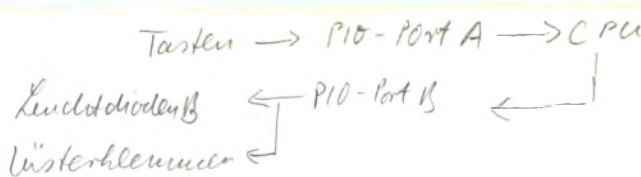 Tasten → PIO-Port A → CPU
Leuchtdioden B ← PIO-Port B ←
Lüsterklemmen ←